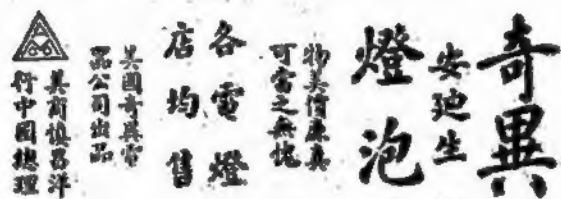 奇異
安迪生
燈泡
物美價廉真
可當之無愧
各電燈
店均售
美國奇異電
器公司出品
美商慎昌洋
行中國總理